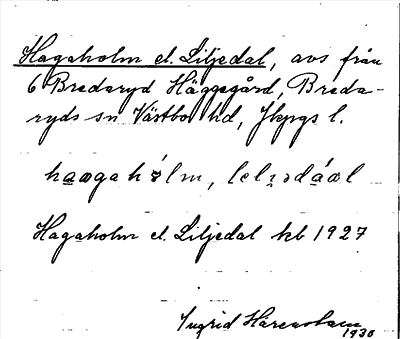 Hagaholm el. Liljedal, avs från
6 Bredaryd Häggegård, Breda-
ryds sn Västbo hd, Jkpgs l.
Hagaholm el. Liljedal kb 1927
Ingrid
1930